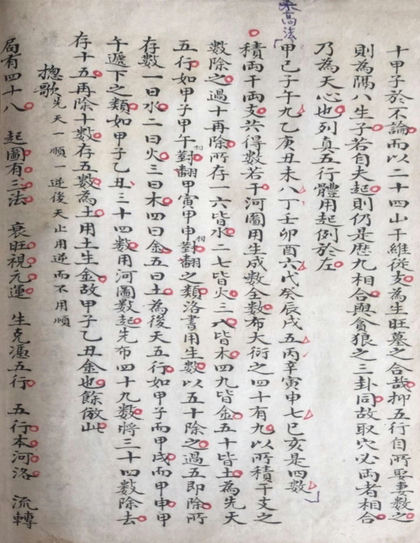 十甲子於不論而以二四山干維從支為生旺墓之合哉抑五行自所要妻數之
則為隔八生子若自夫起則仍是歷九相合與貪狼之三卦同故取穴必两者相合
乃為天心也列真五行體用起例於左
太高法
甲己子午九乙庚丑未八丁壬卯酉六戊癸辰戌五丙辛寅申七巳亥是四數
積両干両支共得數若干河圖用生成數全數布大衍之四十有九以所積干支之
數除之過十再除所存一六皆水二七皆火三八皆木四九皆金五十皆土為先天
五行如甲子甲午對翻甲寅甲申對翻之類洛書用生數以五十除之過五即除所
相
相
存數一曰水二曰火三曰木四曰金五曰土為後天五行如甲子而甲戌而甲申甲
午遞下之類如甲子乙丑三十四數用河圖數起先布四十九數將三十四數除去
存十五再除十數存五數為土用土生金故甲子乙丑金也餘倣此
揔歌 先天一順一逆後天止用逆而不用順
局有四十八 起圖有三法 衰旺視元運 生克憑五行 五行本河洛 流轉